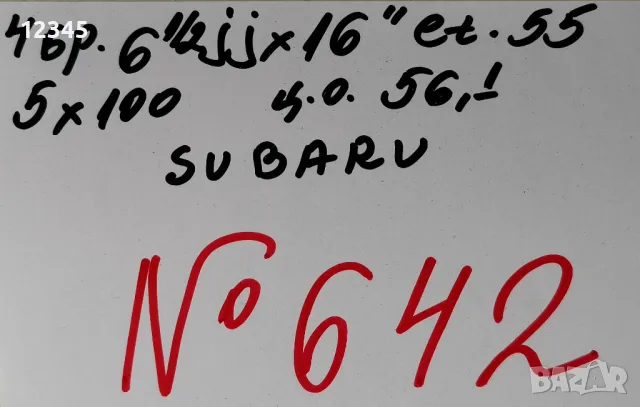 12345
4бр. 6 1/2jjx16" et.55
5x100 ц.о. 56,1
SUBARU
№642
BAZAR